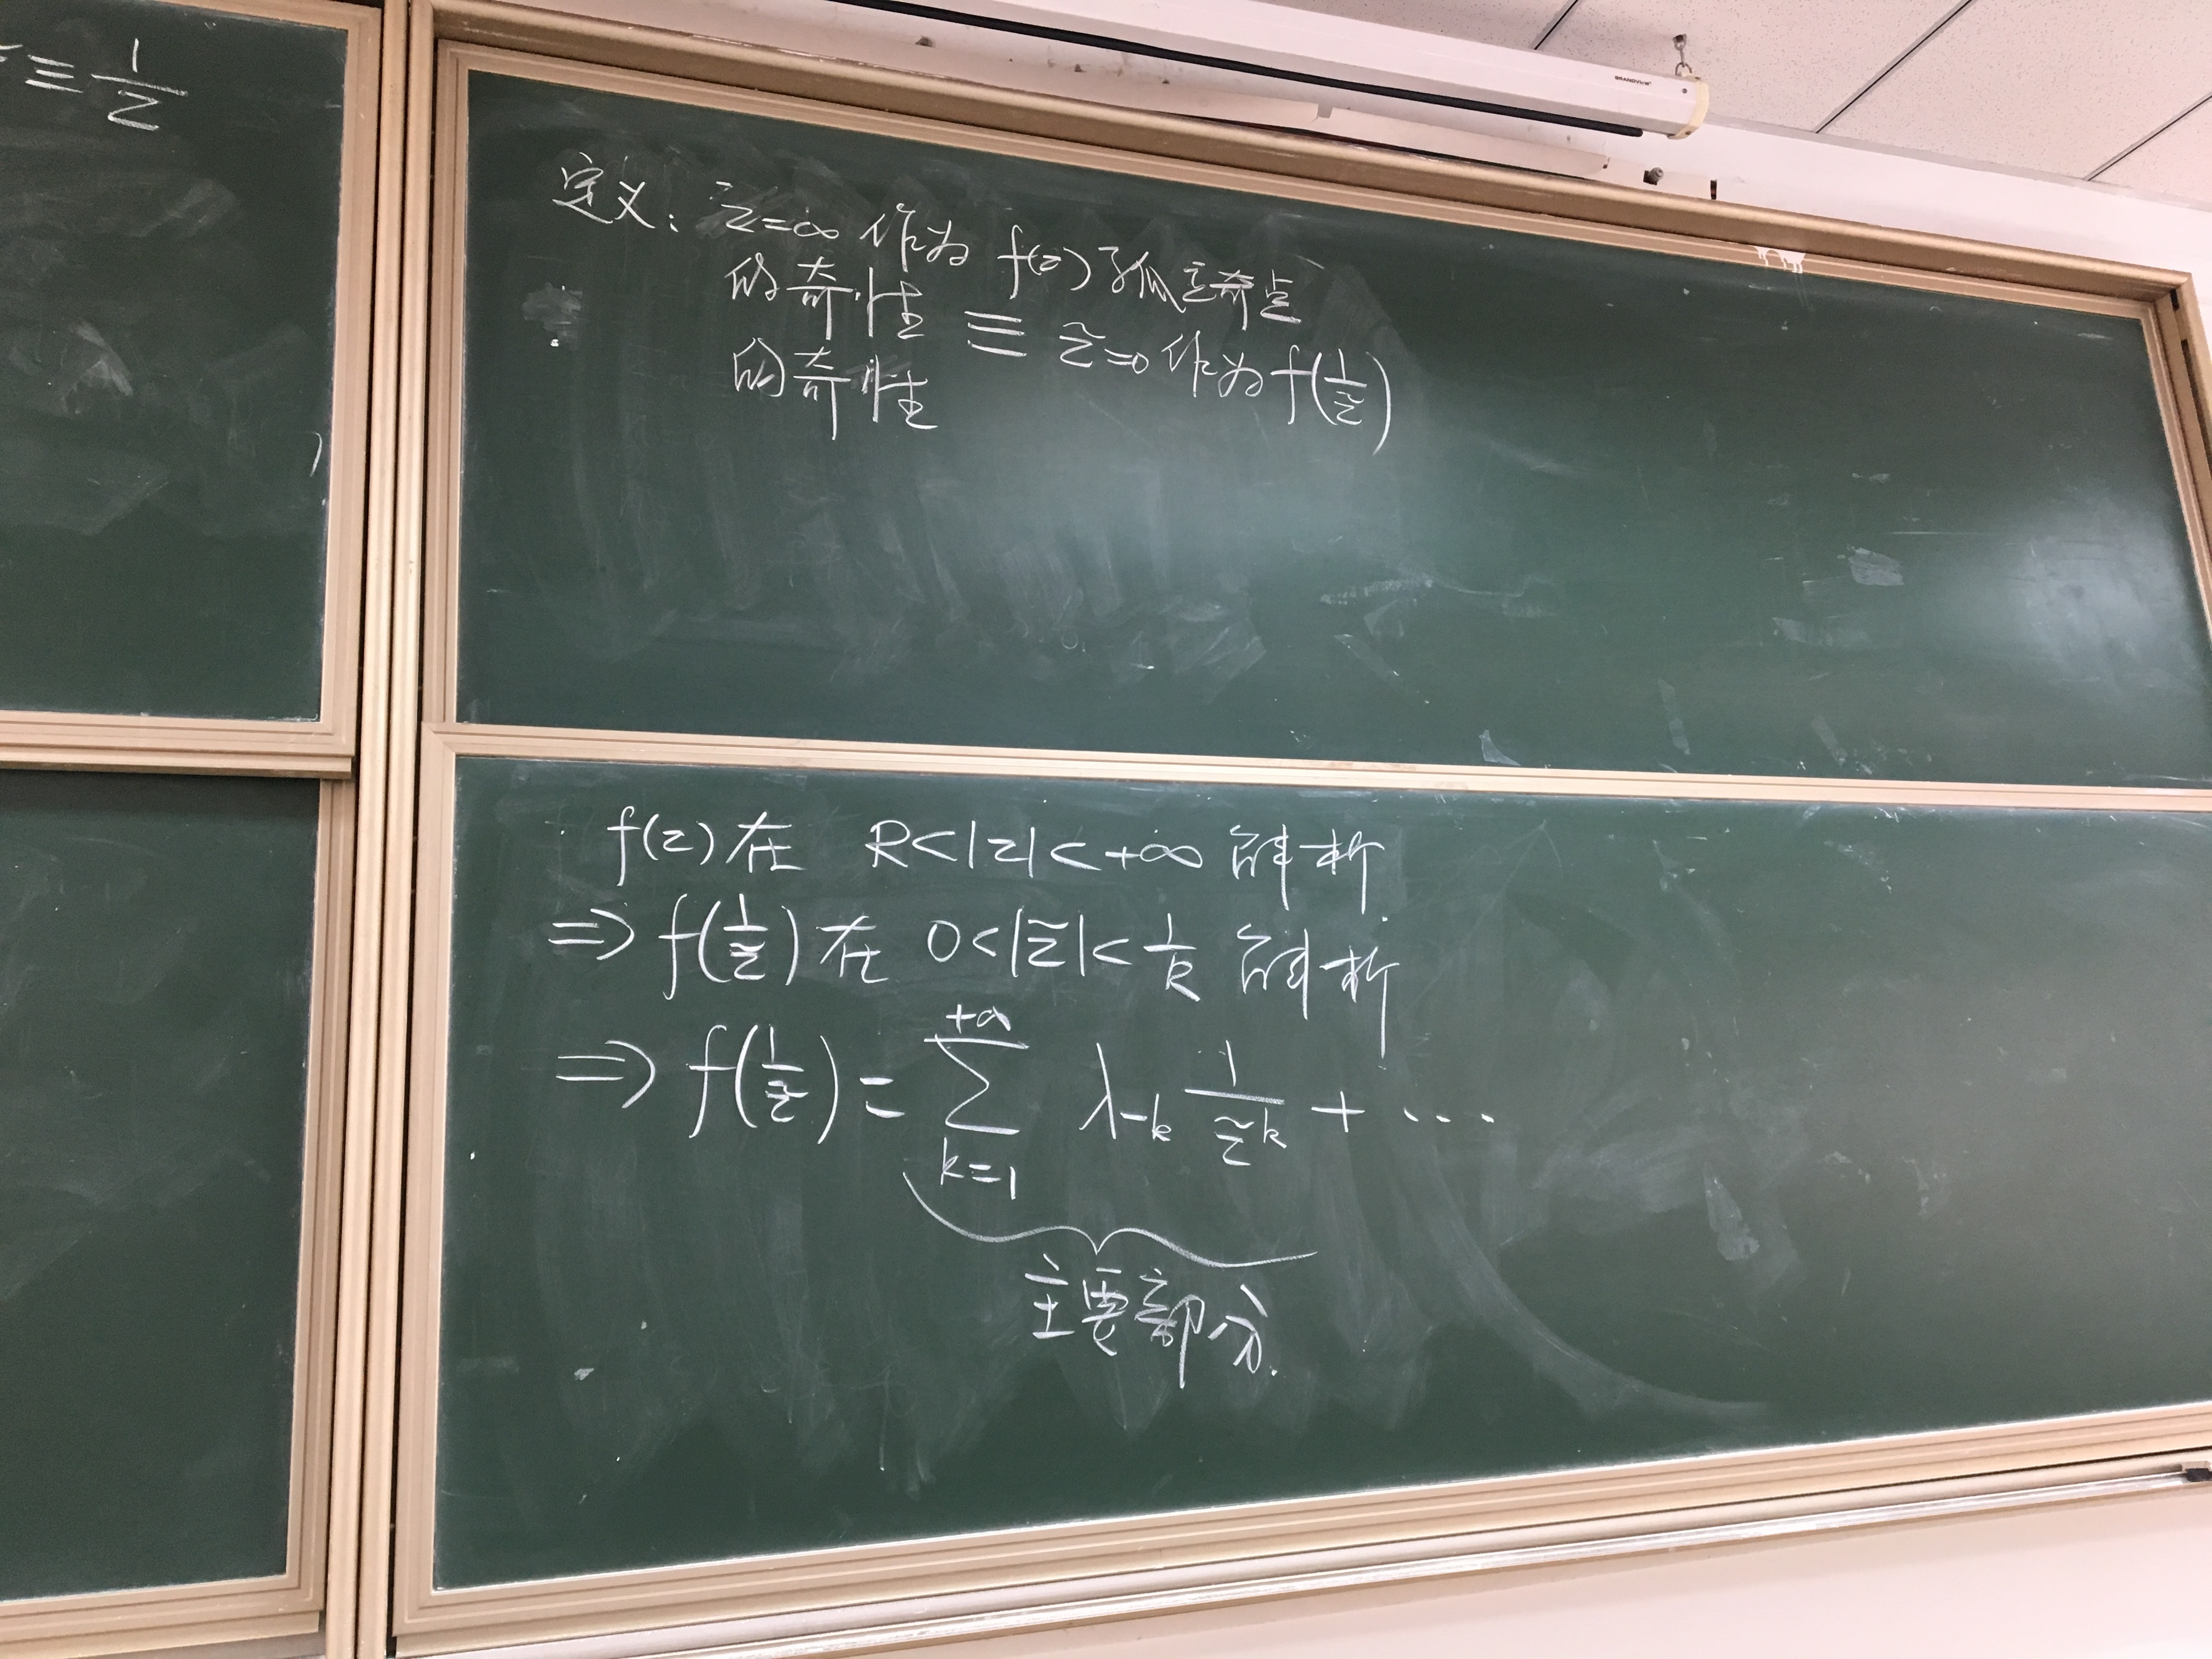 ≡ 1/z
BRANDView
定义: z=∞ 作为 f(z) 孤立奇点
的奇性 ≡ z̃=0 作为 f(1/z̃)
的奇性
f(z) 在 R<|z|<+∞ 解析
⇒ f(1/z̃) 在 0<|z̃|<1/R 解析
⇒ f(1/z̃) = ∑_{k=1}^{+∞} λ_{-k} 1/z̃^k + ⋯
主要部分.